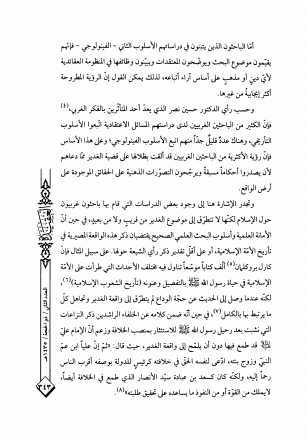 أمّا الباحثون الذين يتبنون في دراساتهم الأسلوب الثاني - الفينولوجي - فإنّهم
يقيّمون موضوع البحث ويوضّحون المعتقدات ويبيّنون وظائفها في المنظومة العقائدية
لأيّ دينٍ أو مذهبٍ على أساس آراء أتباعه، لذلك يمكن القول إنّ الرؤية المطروحة
أكثر إيجابيةً من غيرها.
وحسب رأي الدكتور حسين نصر الذي يعدّ أحد المتأثّرين بالفكر الغربي،(٤)
فإنّ الكثير من الباحثين الغربيين لدى دراستهم المسائل الاعتقادية اتّبعوا الأسلوب
التأريخي، وهناك عددٌ قليلٌ جداً منهم اتبع الأسلوب الفينولوجي؛ وعلى هذا الأساس
فإنّ رؤية الأكثرية من الباحثين الغربيين قد ألقت بظلالها على قضية الغدير ممّا دعاهم
لأن يصدروا أحكاماً مسبقةً ويرجّحون التصوّرات الذهنية على الحقائق الموجودة على
أرض الواقع.
وتجدر الإشارة هنا إلى وجود بعض الدراسات التي قام بها باحثون غربيون
حول الإسلام لكنّها لا تتطرّق إلى موضوع الغدير من قريبٍ ولا من بعيدٍ، في حين أنّ
الأمانة العلمية وأسلوب البحث العلمي الصحيح يقتضيان ذكر هذه الواقعة المصيرية في
تأريخ الأمّة الإسلامية، أو على أقل تقدير ذكر رأي الشيعة حولها. على سبيل المثال فإنّ
كارل بروكلمان(٥) ألف كتاباً موسّعاً تناول فيه مختلف الأحداث التي طرأت على الأمّة
الإسلامية في حياة رسول الله ﷺ بالتفصيل وعنونه (تأريخ الشعوب الإسلامية)(٦)،
لكنّه عندما وصل إلى الحديث عن حجّة الوداع لم يتطرّق إلى واقعة الغدير وتجاهل كلّ
ما يرتبط بها بالكامل(٧)، في حين أنّه ضمن كلامه عن الخلفاء الراشدين ذكر النزاعات
التي نشبت بعد رحيل رسول الله ﷺ للاستئثار بمنصب الخلافة وزعم أنّ الإمام عليّ
قد طمع فيها دون أن يلمّح إلى واقعة الغدير، حيث قال: «ثمّ إنّ علياً ابن عمّ
النبيّ وزوج بنته، ادّعى لنفسه الحقّ في خلافته كرئيس للدولة بوصفه أقرب الناس
رحماً إليه، ولكنّه كان كسعد بن عبادة سيّد الأنصار الذي طمع في الخلافة أيضاً،
لايملك من القوّة أو من النفوذ ما يساعده على تحقيق طلبته»(٨).
العدد الثاني / ذو الحجة / ١٤٣٥هـ
٣٤٣